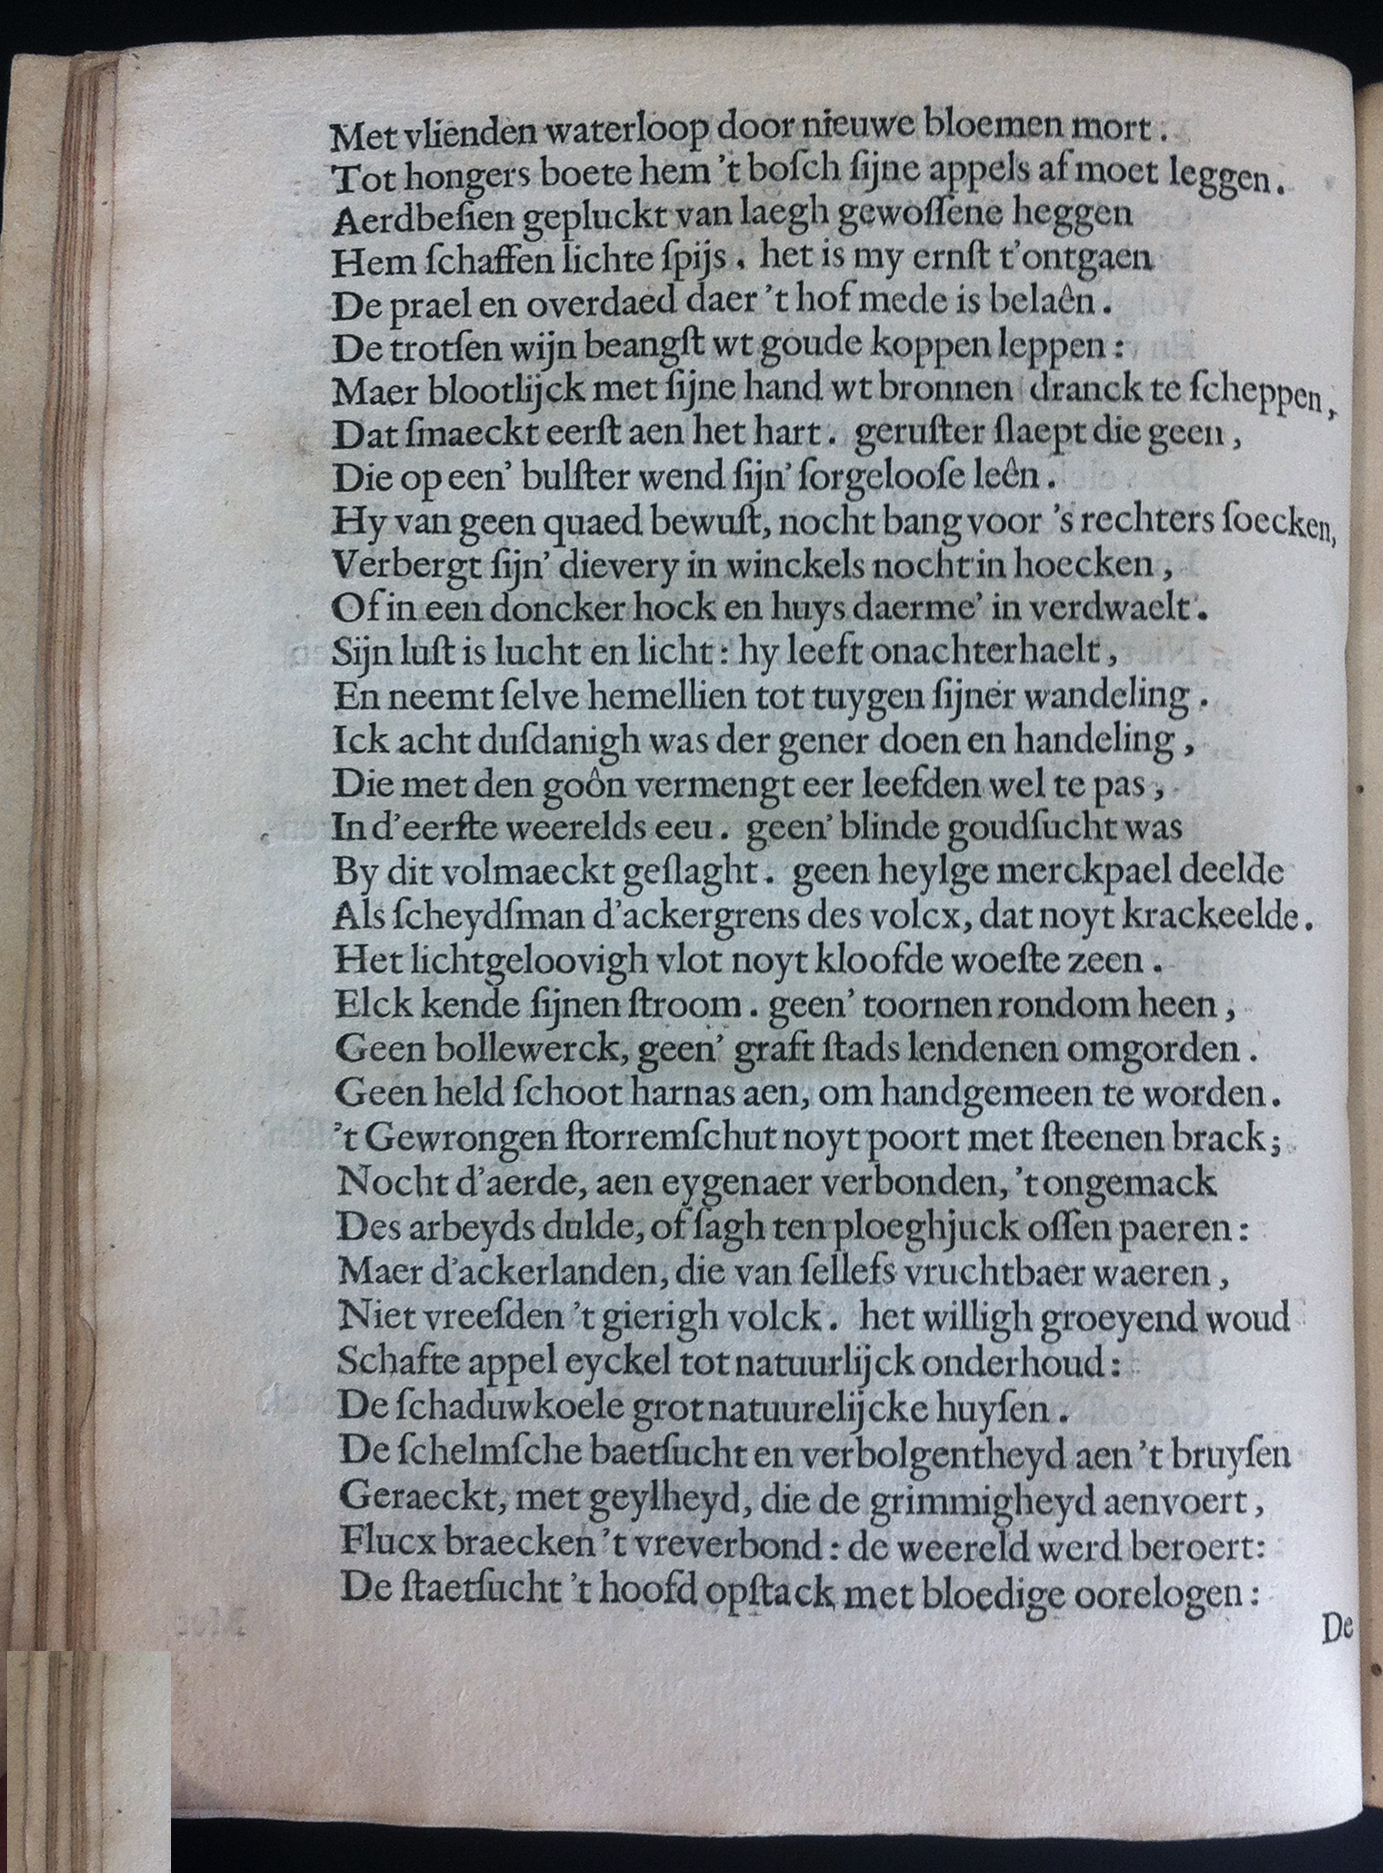 Met vlienden waterloop door nieuwe bloemen mort.
Tot hongers boete hem 't boſch ſijne appels af moet leggen.
Aerdbeſien gepluckt van laegh gewoſſene heggen
Hem ſchaffen lichte ſpijs. het is my ernſt t'ontgaen
De prael en overdaed daer 't hof mede is belaên.
De trotſen wijn beangſt wt goude koppen leppen:
Maer blootlijck met ſijne hand wt bronnen dranck te ſcheppen,
Dat ſmaeckt eerſt aen het hart. geruſter ſlaept die geen,
Die op een' bulſter wend ſijn' ſorgelooſe leên.
Hy van geen quaed bewuſt, nocht bang voor 's rechters ſoecken,
Verbergt ſijn' dievery in winckels nocht in hoecken,
Of in een doncker hock en huys daerme' in verdwaelt.
Sijn luſt is lucht en licht: hy leeft onachterhaelt,
En neemt ſelve hemellien tot tuygen ſijner wandeling.
Ick acht duſdanigh was der gener doen en handeling,
Die met den goôn vermengt eer leefden wel te pas,
In d'eerſte weerelds eeu. geen' blinde goudſucht was
By dit volmaeckt geſlaght. geen heylge merckpael deelde
Als ſcheydſman d'ackergrens des volcx, dat noyt krackeelde.
Het lichtgeloovigh vlot noyt kloofde woeſte zeen.
Elck kende ſijnen ſtroom. geen' toornen rondom heen,
Geen bollewerck, geen' graft ſtads lendenen omgorden.
Geen held ſchoot harnas aen, om handgemeen te worden.
't Gewrongen ſtorremſchut noyt poort met ſteenen brack;
Nocht d'aerde, aen eygenaer verbonden, 't ongemack
Des arbeyds dulde, of ſagh ten ploeghjuck oſſen paeren:
Maer d'ackerlanden, die van ſellefs vruchtbaer waeren,
Niet vreeſden 't gierigh volck. het willigh groeyend woud
Schafte appel eyckel tot natuurlijck onderhoud:
De ſchaduwkoele grot natuurelijcke huyſen.
De ſchelmſche baetſucht en verbolgentheyd aen 't bruyſen
Geraeckt, met geylheyd, die de grimmigheyd aenvoert,
Flucx braecken 't vreverbond: de weereld werd beroert:
De ſtaetſucht 't hoofd opſtack met bloedige oorelogen:
De